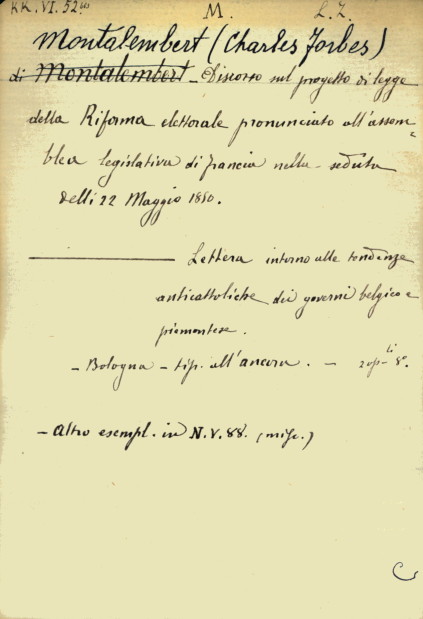 KK. VI. 52
M.
L. Z.
Montalembert (Charles Forbes)
di Montalembert - Discorso sul progetto di legge
della Riforma elettorale pronunciato all'assem=
blea legislativa di francia nella seduta
delli 22 Maggio 1850.
Lettera intorno alle tendenze
anticattoliche dei governi belgico e
piemontese.
- Bologna - tip. all'ancora. - 8°
- Altro esempl. in N. V. 88. (misc.)